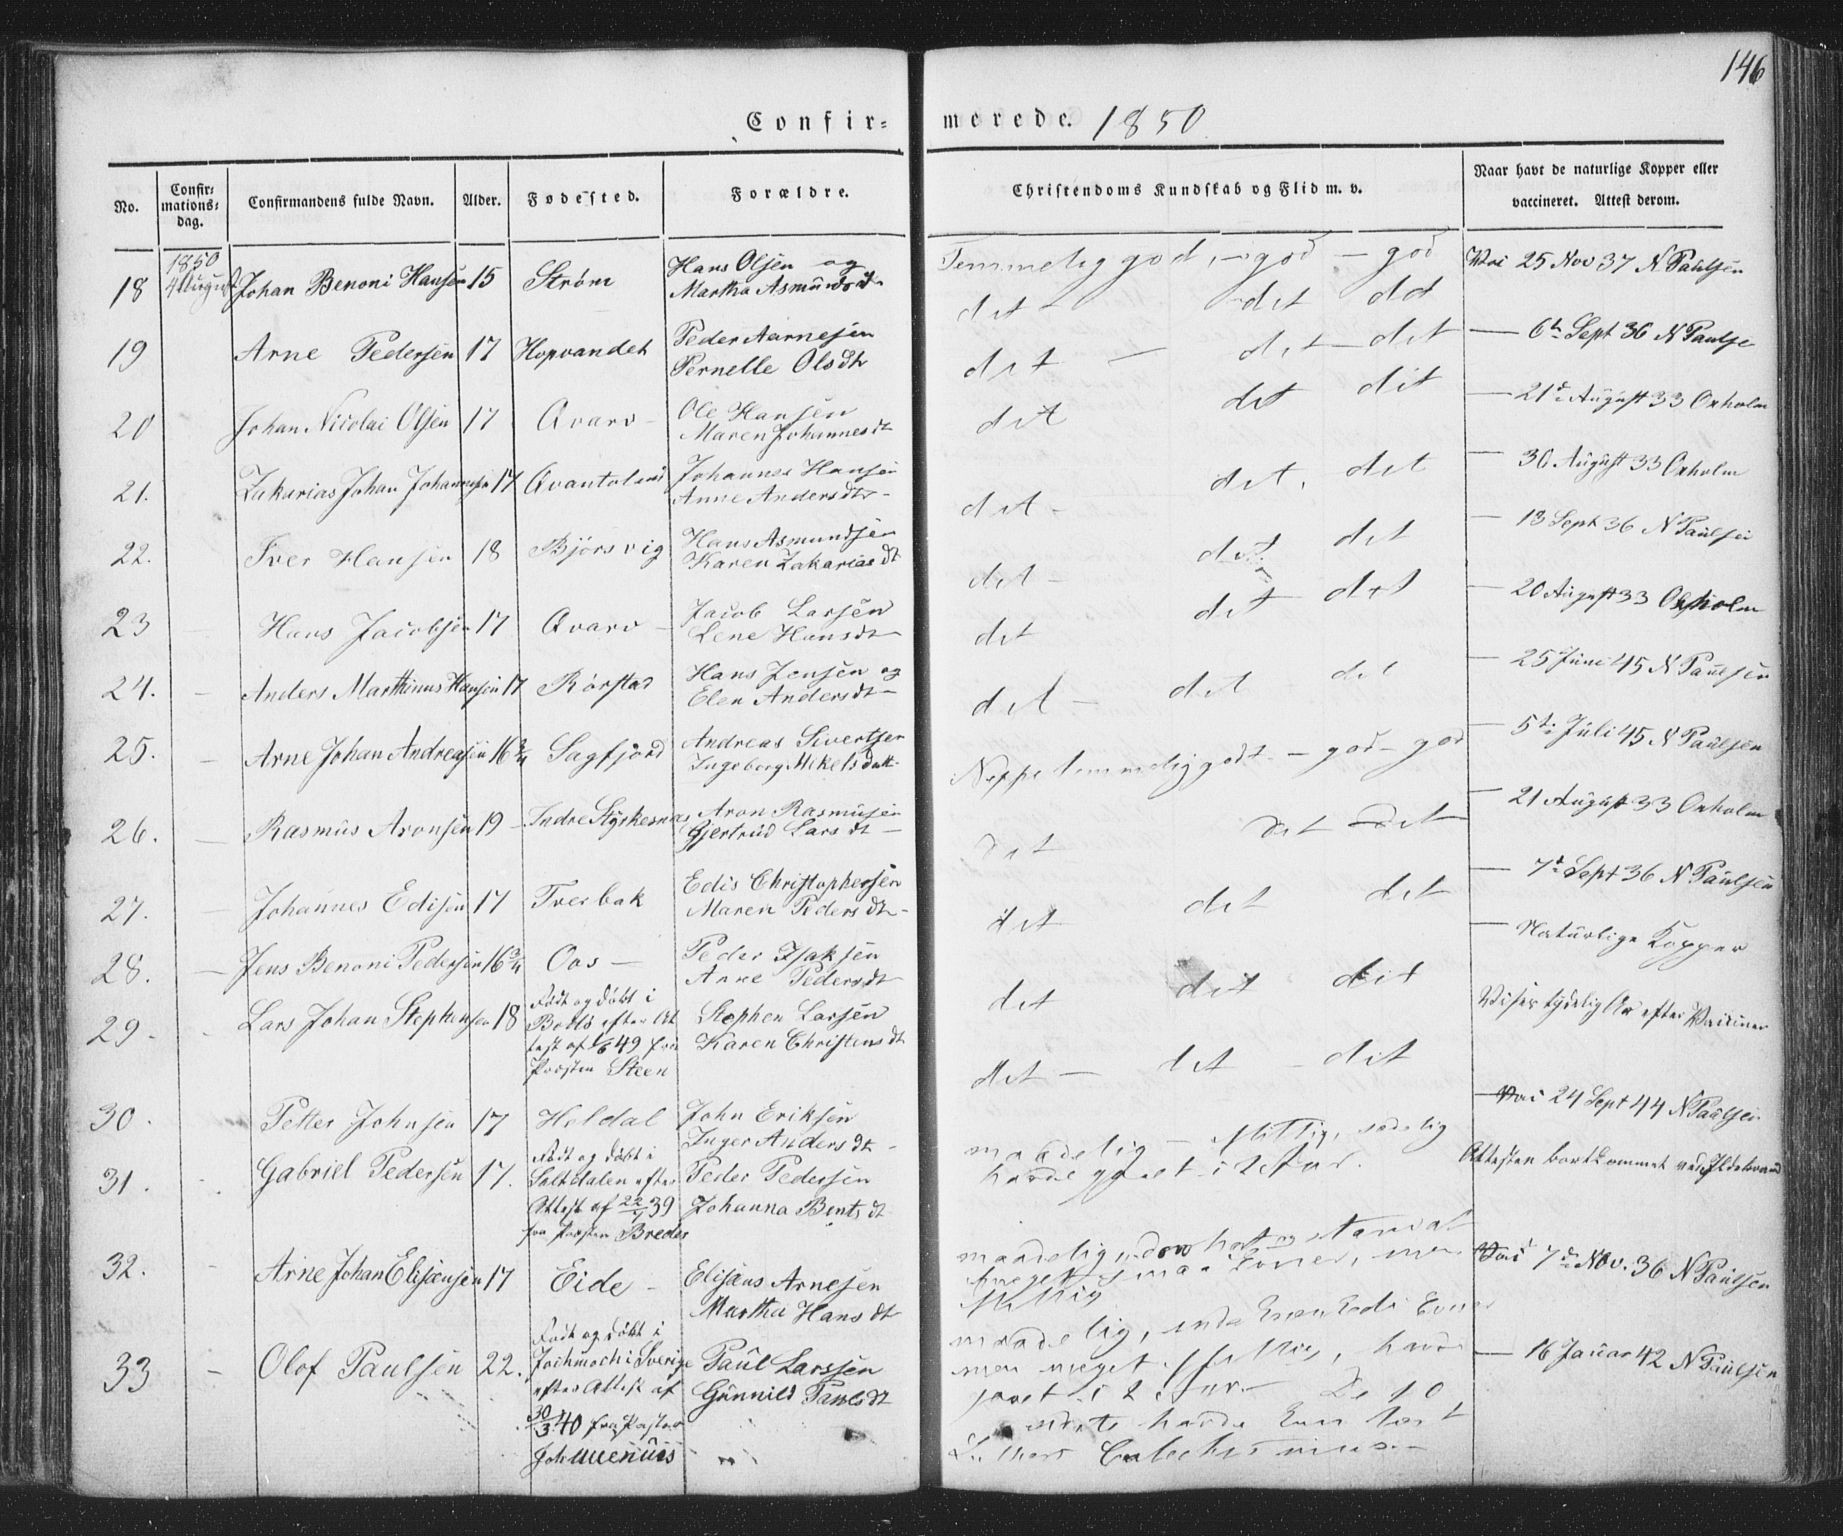 146
Confir= merede. 1850
No. Confir=mations=dag. Confirmandens fulde Navn. Alder. Fødested. Forældre. Christendoms Kundskab og Flid m. v. Naar havt de naturlige Kopper eller vaccineret. Attest derom.
18 1850 4 August Johan Benoni Hansen 15 Strøm Hans Olsen og Martha Asmundsdt Temmelig god, - god - god Vac 25 Nov 37 N. Paulsen
19 Arne Pedersen 17 Hopvandet Peder Aarnesen Pernelle Olsdtr det - det det — 6te Sept 36 N Paulse
20 Johan Nicolai Olsen 17 Qvarv - Ole Hansen Maren Johannesdt det — det - det — 21de August 33 Oxholm
21. Zakarias Johan Johannesen 17 Johannes Hansen Anne Andersdtr - det det det — 30 August 33 Oxholm
22. Iver Hansen 18 Bjørsvig Hans Asmundsen Karen Zakariasdt det - det, det — 13 Sept 36 N Paulsen
23 - Hans Jacobsen 17 Qvarv - Jacob Larsen Lene Hansdt det - det det — 20 August 33 Oxholm
24. - Anders Marthinus Hansen 17 Rørstad Hans Jensen og Elen Andersdt - det det det — 25 Juni 45 N Paulsen
25. - Arne Johan Andreasen 16 3/4 Sagfjord Andreas Sivertsen Ingeborg Mikelsdatt. det - det det — 5te Juli 45 N Paulsen
26. - Rasmus Aronsen 19 - Indre Styrkesnæs Aron Rasmusen Gjertrud Larsdt - Neppe temmelig godt - god - god — 21 August 33 Oxholm
27. - Johannes Edisen 17 Tverbak Edis Christophersen Maren Pedersdt - det det - det — 7de Sept 36 N Paulsen
28. - Jens Benoni Pedersen 16 3/4 Oos — Peder Isaksen Anne Pedersdt det det det — Naturlige Kopper
29 - Lars Johan Stephensen 18 Født og Døbt i Bodø efter At test af 1/6 49 fra Præsten Steen Stephen Larsen Karen Christensdt det det det Viser tydelig Ar efter Vaccinen
30. Petter Johnsen 17 Heldal John Eriksen Inger Andersdt - det - det - det — Vac 24 Sept 44 N Paulsen
31. - Gabriel Pedersen 17. Født og Døbt i Saltdalen efter Attest af 22/1 39 fra Præsten Breder Peder Pedersen Johanna Bentsdt maadelig - flittig, sædelig havde gaaet i 2 Aar. Attesten bortkommet ved Ildebrand
32. - Arne Johan Elisæusen 17 Eide - Elisæus Arnesen Martha Hansdt maadelig, meget smaa Evner, men flittig Vac 7de Nov. 36 N Paulsen
33 - Olof Paulsen 22. Født og Døbt i Jockmock i Sverige efter Attest af 30/3 40 fra Pastor Johan Paul Larssen Gunnild Paulsdt maadelig, Evner men meget flittig, havde i 2 Aar - De 10 havde kun lært Luthers Catechismus. - — 16 Januar 42 N Paulsen